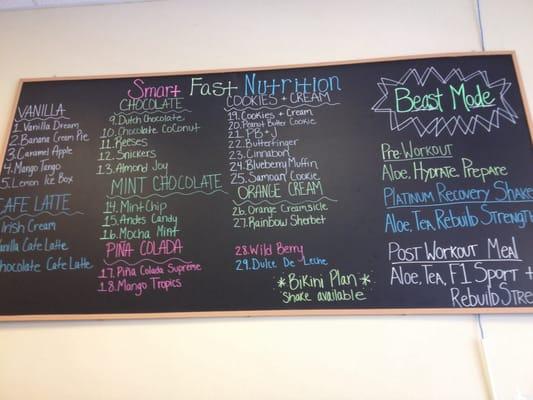 Smart Fast Nutrition
VANILLA
1. Vanilla Dream
2. Banana Cream Pie
3. Caramel Apple
4. Mango Tango
5. Lemon Ice Box
CAFE LATTE
Irish Cream
Vanilla Cafe Latte
Chocolate Cafe Latte
CHOCOLATE
9. Dutch Chocolate
10. Chocolate Coconut
11. Reeses
12. Snickers
13. Almond Joy
MINT CHOCOLATE
14. Mint Chip
15. Andes Candy
16. Mocha Mint
PIÑA COLADA
17. Piña Colada Supreme
18. Mango Tropics
COOKIES + CREAM
19. Cookies + Cream
20. Peanut Butter Cookie
21. PB + J
22. Butterfinger
23. Cinnabon
24. Blueberry Muffin
25. Samoan Cookie
ORANGE CREAM
26. Orange Creamsicle
27. Rainbow Sherbet
28. Wild Berry
29. Dulce De Leche
*Bikini Plan*
Shake available
Beast Mode
Pre-Workout
Aloe, Hydrate Prepare
Platinum Recovery Shake
Aloe, Tea, Rebuild Strength
Post Workout Meal
Aloe, Tea, F1 Sport +
Rebuild Stre